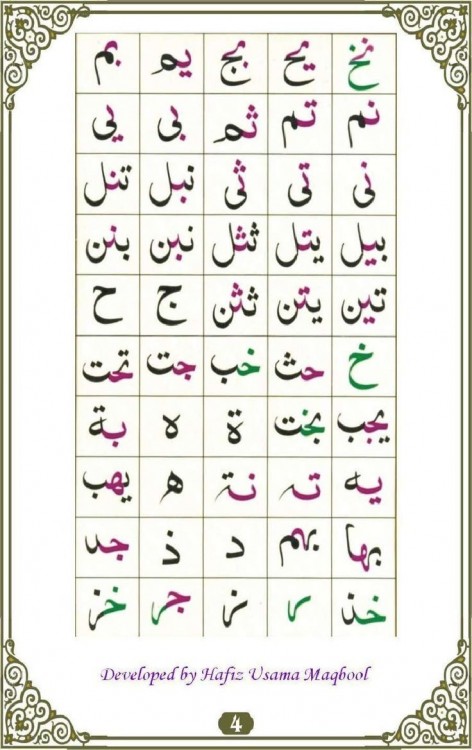 نخ يح بج يم بم
نم تم ثم بى يى
نى تى ثى نبل تنل
بيل يتل ثثل نبن بنن
تين يتن ثثن ج ح
خ حث خب جت تحت
يجب بخت ة ه بة
يه ته نة ه يهب
بها بهم د ذ جد
خذ ر ز جر خز
Developed by Hafiz Usama Maqbool
4